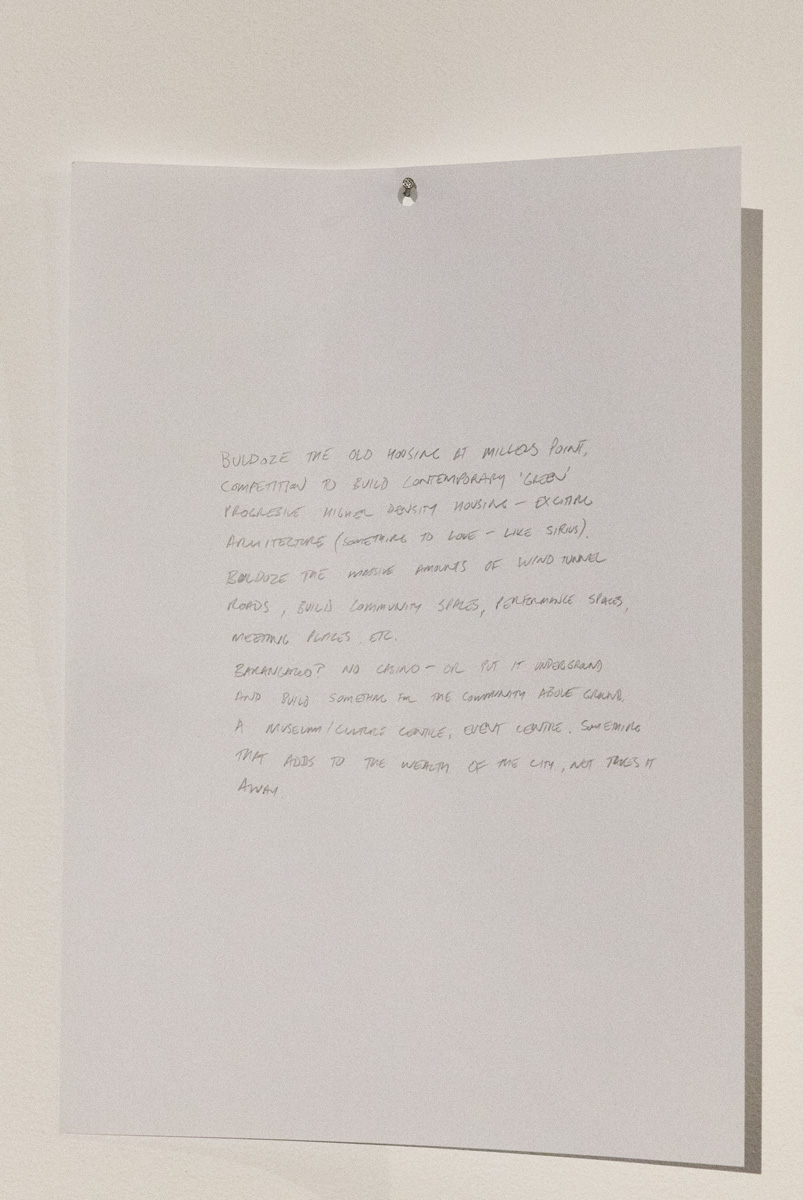 BULDOZE THE OLD HOUSING AT MILLERS POINT,
COMPETITION TO BUILD CONTEMPORARY 'GREEN'
PROGRESIVE HIGHER DENSITY HOUSING – EXCITING
ARCHITECTURE (SOMETHING TO LOVE – LIKE SIRIUS).
BULDOZE THE MASSIVE AMOUNTS OF WIND TUNNEL
ROADS, BUILD COMMUNITY SPACES, PERFORMANCE SPACES,
MEETING PLACES ETC.
BARANGAROO? NO CASINO – OR PUT IT UNDERGROUND
AND BUILD SOMETHING FOR THE COMMUNITY ABOVE GROUND.
A MUSEUM/CULTURE CENTRE, EVENT CENTRE. SOMETHING
THAT ADDS TO THE WEALTH OF THE CITY, NOT TAKES IT
AWAY